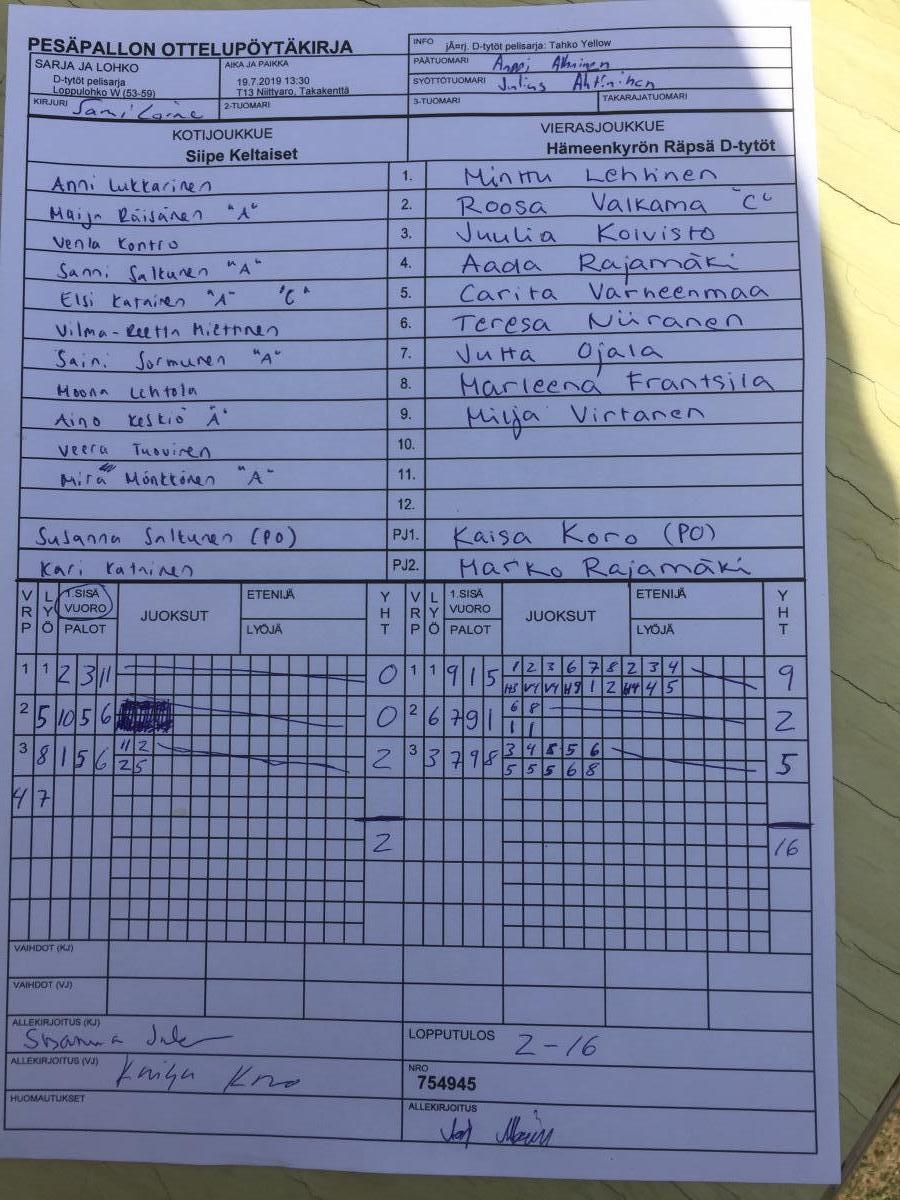 PESÄPALLON OTTELUPÖYTÄKIRJA
INFO jÄ¤rj. D-tytöt pelisarja: Tahko Yellow
PÄÄTUOMARI Anni
SYÖTTÖTUOMARI Julius Ahtinen
SARJA JA LOHKO
D-tytöt pelisarja
Loppulohko W (53-59)
AIKA JA PAIKKA
19.7.2019 13:30
T13 Niittyaro, Takakenttä
KIRJURI Sami Laine
2-TUOMARI
3-TUOMARI
TAKARAJATUOMARI
KOTIJOUKKUE
Siipe Keltaiset
VIERASJOUKKUE
Hämeenkyrön Räpsä D-tytöt
Anni Lukkarinen 1. Minttu Lehtinen
Maija Räisänen "A" 2. Roosa Valkama "C"
Venla Kontro 3. Juulia Koivisto
Sanni Saltunen "A" 4. Aada Rajamäki
Elsi Katainen "A" "C" 5. Carita Varheenmaa
Vilma-Reetta Miettinen 6. Teresa Niiranen
Saini Sormunen "A" 7. Jutta Ojala
Moona Lehtola 8. Marleena Frantsila
Aino Keskiö "A" 9. Milja Virtanen
Veera Tuovinen 10.
Mira Mönkkönen "A" 11.
12.
Susanna Saltunen (PO) PJ1. Kaisa Koro (PO)
Kari Katainen PJ2. Marko Rajamäki
VRP LYÖ 1.SISÄ VUORO PALOT JUOKSUT ETENIJÄ LYÖJÄ YHT VRP LYÖ 1.SISÄ VUORO PALOT JUOKSUT ETENIJÄ LYÖJÄ YHT
1 1 2 3 11 0 1 1 9 1 5 1 2 3 6 7 8 2 3 4 9
2 5 10 5 6 0 2 6 7 9 1 6 8 2
1 1
3 8 1 5 6 11 2 2 3 3 7 9 8 3 4 5 5 6 5
2 5 5 5 5 6 8
4 7
2 16
VAIHDOT (KJ)
VAIHDOT (VJ)
ALLEKIRJOITUS (KJ) Susanna
LOPPUTULOS 2-16
ALLEKIRJOITUS (VJ) Kaisa Koro
NRO
754945
HUOMAUTUKSET
ALLEKIRJOITUS